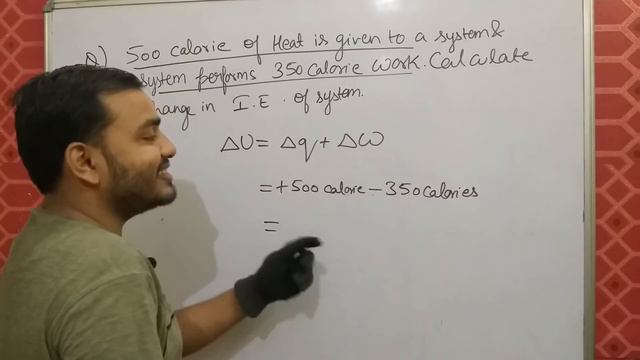 Q) 500 calorie of Heat is given to a system &
system performs 350 Calorie work. Calculate
hange in I.E. of system.
ΔU = Δq + Δω
= + 500 calorie - 350 calories
=